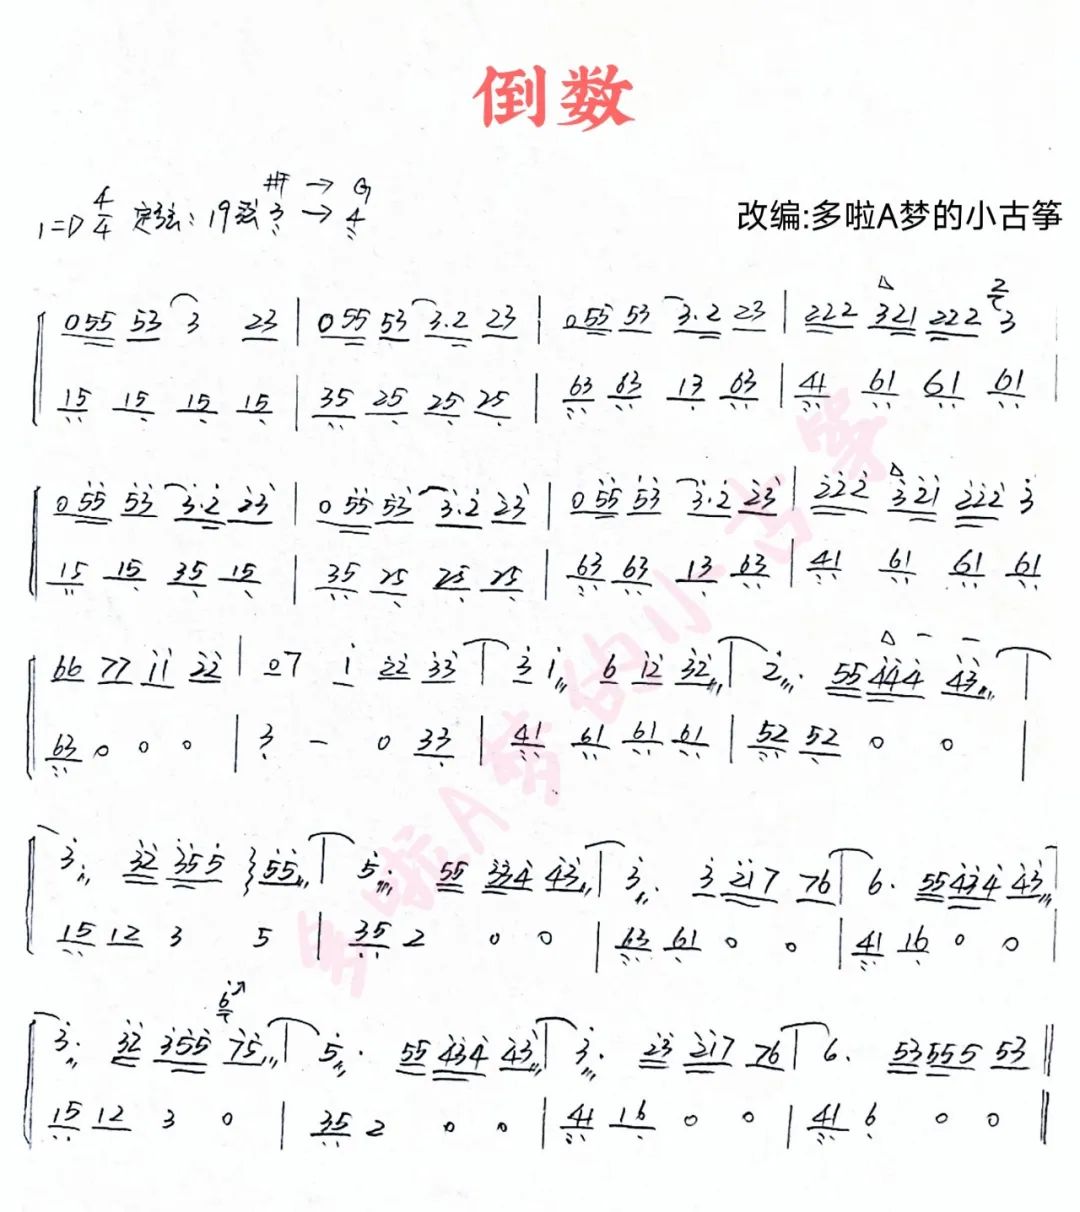 倒数
1=D 4/4 定弦: 19弦 3 → 4 # → G
改编:多啦A梦的小古筝
055 53 3 23 | 055 53 3·2 23 | 055 53 3·2 23 | 222 321 222 3
15 15 15 15 | 35 25 25 25 | 63 63 13 63 | 41 61 61 61
055 53 3·2 23 | 055 53 3·2 23 | 055 53 3·2 23 | 222 321 222 3
15 15 35 15 | 35 25 25 25 | 63 63 13 63 | 41 61 61 61
66 77 11 22 | 07 1 22 33 | 3 1 6 12 32 | 2· 55 444 43 |
63 0 0 0 | 3 - 0 33 | 41 61 61 61 | 52 52 0 0 |
3 32 355 55 | 5 55 334 43 | 3· 3 217 76 | 6· 55 434 43
15 12 3 5 | 35 2 0 0 | 63 61 0 0 | 41 16 0 0
3· 32 355 75 | 5· 55 434 43 | 3· 23 217 76 | 6· 53 555 53 ||
15 12 3 0 | 35 2 0 0 | 41 16 0 0 | 41 6 0 0 ||
多啦A梦的小古筝